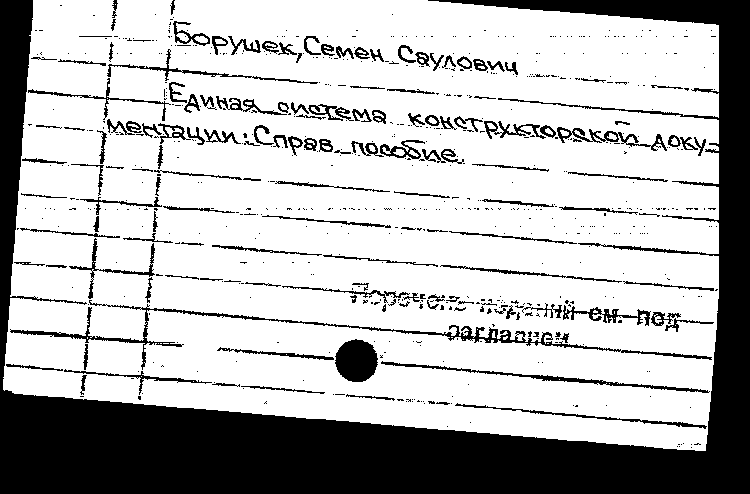 Борушек, Семен Саулович
Единая система конструкторской доку-
ментации: Справ. пособие.
Перечень изданий см. под
заглавием